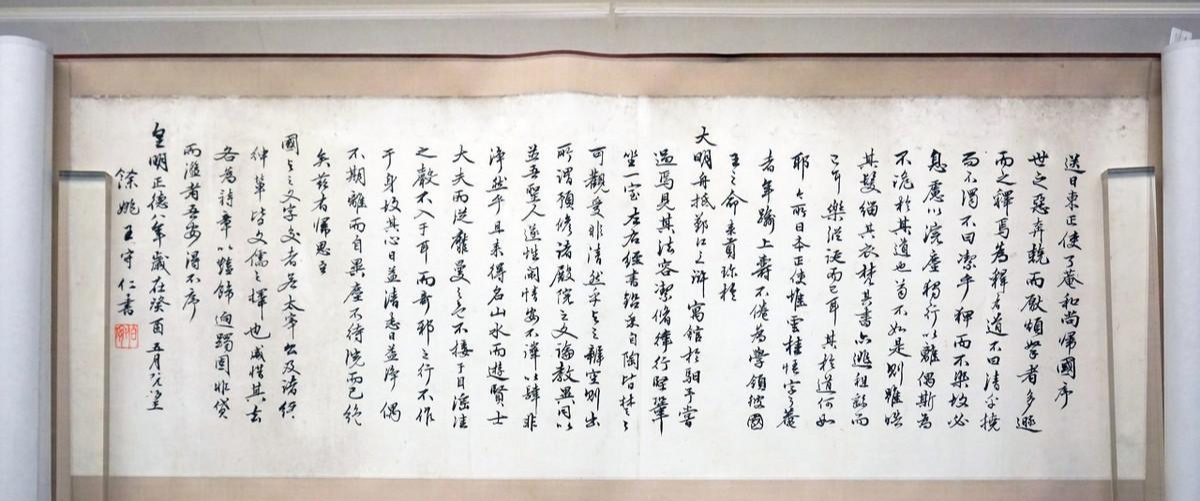 送日東正使了庵和尚歸國序
世之惡奔競而厭煩拏者多遯
而之釋焉為釋有道不曰清乎撓
而不濁不曰潔乎狎而不染故必
息慮以浣塵獨行以離偶斯為
不詭於其道也苟不如是則雖皓
其髮緇其衣梵其書亦逃租繇而
已耳樂縱誕而已耳其於道何如
耶今有日本正使堆雲桂悟字了庵
者年踰上壽不倦為學領彼國
王之命來貢珍於
大明舟抵鄞江之滸寓館於馹予嘗
過焉見其法容潔脩律行堅鞏
坐一室左右經書鉛采自陶皆楚楚
可觀愛非清然乎與之辨空則出
所謂預修諸殿院之文論教異同以
並吾聖人遂性閑情安不譁以肆非
淨然乎且來得名山水而遊賢士
大夫而從靡曼之色不接于目淫哇
之聲不入于耳而奇邪之行不作
于身故其心日益清志日益淨偶
不期離而自異塵不待浣而已絕
矣茲有歸思吾
國與之文字交者若太宰公及諸縉
紳輩皆文儒之擇也咸惜其去
各為詩章以艷飾迥躅固非貸
而濫者吾安得不序
皇明正德八年歲在癸酉五月既望
餘姚王守仁書